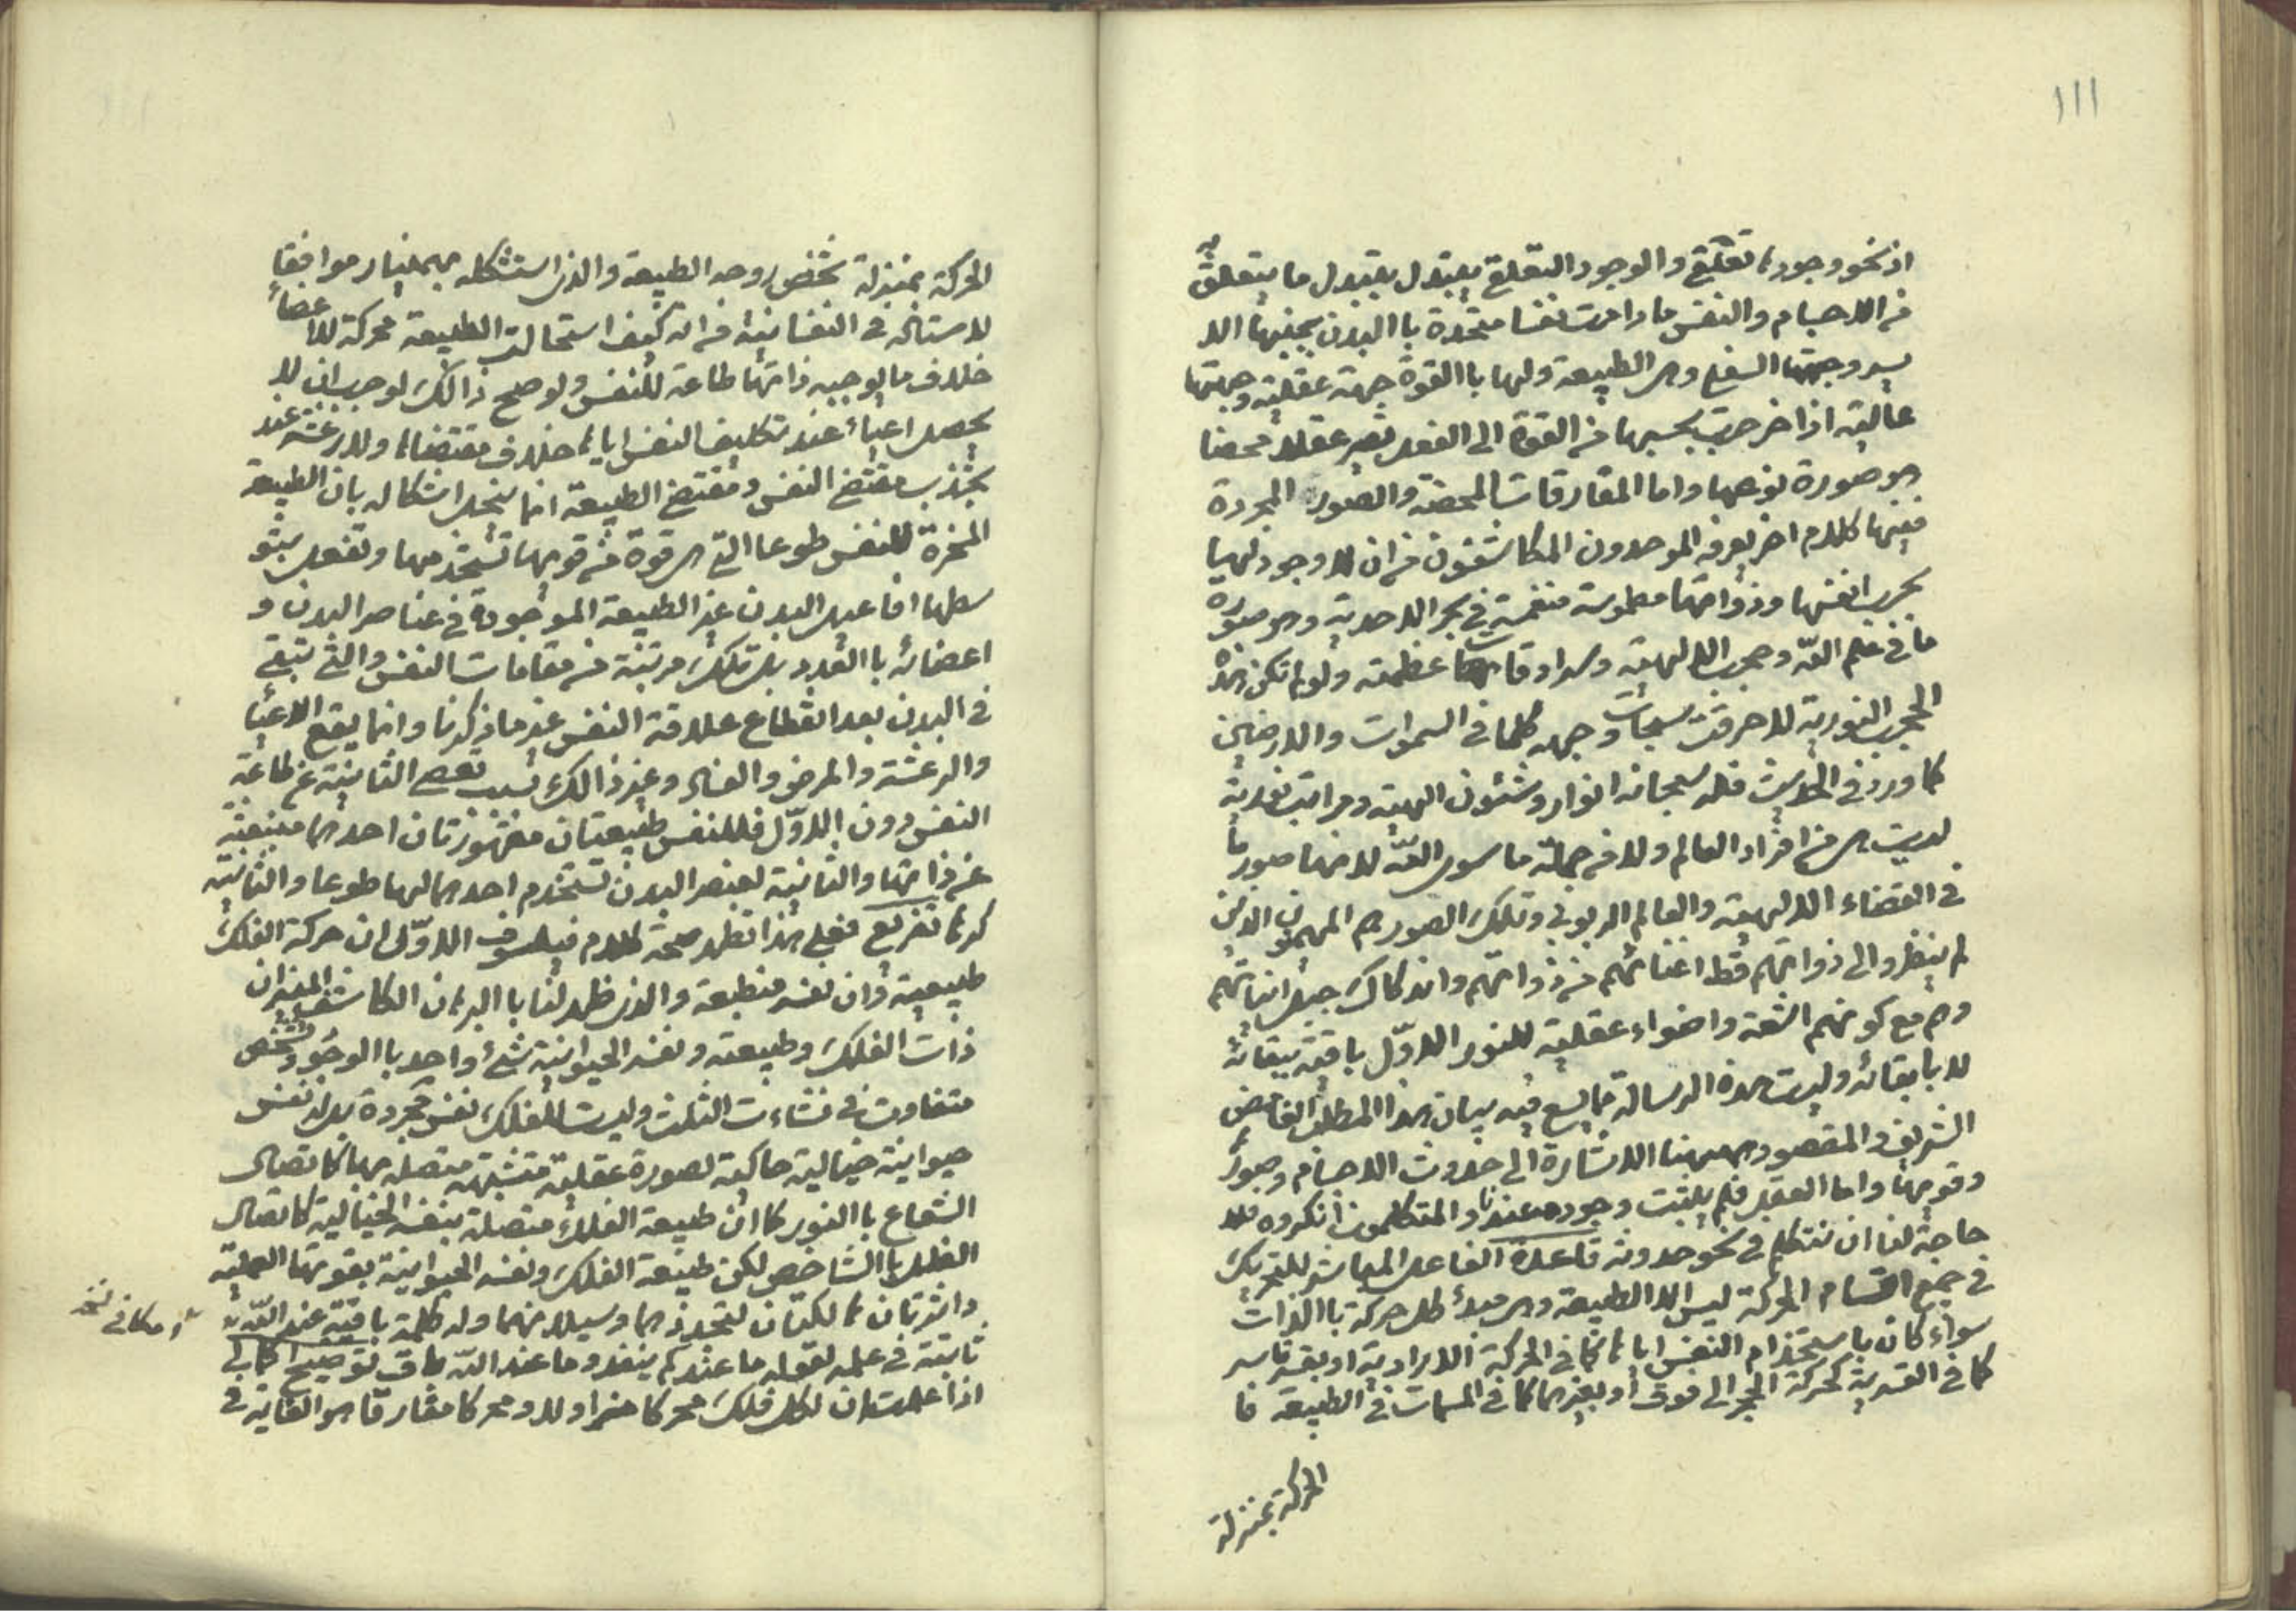 ١١١
اذ نحو وجودها تعلقي والوجود التعلقي يتبدل بتبدل ما يتعلق به
من الاجسام والنفس ما دامت نفسا متحدة باالبدن بجنبها الا
يسر وجهتها السفلى وهى الطبيعة ولها باالقوة جهة عقلية وجهتها
عالية اذا خرجت بحسبها من القوة الى الفعل تصير عقلا محضا
هو صورة نوعها واما المفارقات المحضة والصور المجردة
ففيها كلام اخر يعرفه الموحدون المكاشفون من ان لا وجود لها
بحسب انفسها وذواتها مطموسة منغمسة في بحر الاحدية وهو صورة
ما في علم الله وحجب الالهية وسرادقات عظمته ولو لم تكن هذه
الحجب النورية لاحرقت سبحات وجهه كلما في السموات والارضين
كما ورد في الحديث فله سبحانه انوار وشئون الهية ومراتب نورية
ليست هى من افراد العالم ولا من جملة ما سوى الله لانها صور ما
في القضاء الالهية والعالم الربوبي وتلك الصور هم المهيمون الذين
لم ينظروا الى ذواتهم قط لفنائهم من ذواتهم واندكاك جبل انياتهم
وهم مع كونهم اشعة واضواء عقلية للنور الاوّل باقية ببقائه
لا بابقائه وليست هذه الرسالة مما يسع فيه بيان هذا المطلب الغامض
الشريف والمقصود ههنا الاشارة الى حدوث الاجسام وصورها
وقويها واما العقل فلم يثبت وجوده عندنا والمتكلمون انكروه فلا
حاجة لنا ان نتكلم في نحو حدوثه قاعدة الفاعل المباشر للتحريك
في جميع اقسام الحركة ليس الا الطبيعة وهى مبدأ كل حركة باالذات
سواء كان باستخدام النفس اياها كما في الحركة الارادية او بقسر قاسر
كما في القسرية كحركة الحجر الى فوق او بغيرهما كما في المسمات في الطبيعة فا
الحركة بمنزلة
الحركة بمنزلة شخص روحه الطبيعة والذى استشكله بهمنيار موافقا
لاستاذه في النفسانية من انه كيف استحالت الطبيعة محركة للاعضاء
خلاف ما يوجبه ذاتها طاعة للنفس ولو صح ذالك لوجب ان لا
يحصل اعياء عند تكليف النفس اياها خلاف مقتضاها ولا رعشة عند
تجذب مقتضى النفس ومقتضى الطبيعة انما ينحل اشكاله بان الطبيعة
المسخرة للنفس طوعا التي هى قوة من قويها تستخدمها وتفعل بتو
سطها افاعيل البدن غير الطبيعة الموجودة في عناصر البدن و
اعضائه باالعدد بل تلك مرتبة من مقامات النفس والتي تبقى
في البدن بعد انقطاع علاقة النفس غير ما ذكرنا وانما يقع الاعياء
والرعشة والمرض والفناء وغير ذالك بسبب تعصى الثانية عن طاعة
النفس دون الاوّل فللنفس طبيعتان مقهورتان احدهما منبعثة
عن ذاتها والثانية لعنصر البدن تستخدم احدهما لها طوعا والثانية
كرها تفريع فعلى هذا تظهر صحة كلام فيلسوف الاوّل ان حركة الفلك
طبيعية وان نفسه منطبعة والذى ظهر لنا باالبرهان الكاشف المنير ان
ذات الفلك وطبيعته ونفسه الحيوانية شئ واحد باالوجود وتشخص
متفاوت في نشاءت الثلث وليست للفلك نفس مجردة بل له نفس
حيوانية خيالية حاكية لصورة عقلية متشبهة متصلة بها كاتصال
الشعاع باالنور كما ان طبيعة الفلك متصلة بنفسه الخيالية كاتصال
الظل باالشاخص لكن طبيعة الفلك ونفسه الحيوانية بقوتها العملية
داثرتان هالكتان لتجددهما وسيلانهما وله كلمة باقية عند الله
ثابتة في علمه لقوله ما عندكم ينفد وما عند الله باق توضيح اكمالى
اذا علمت ان لكل فلك محركا مزاولا ومحركا مفارقا هو الغاية في